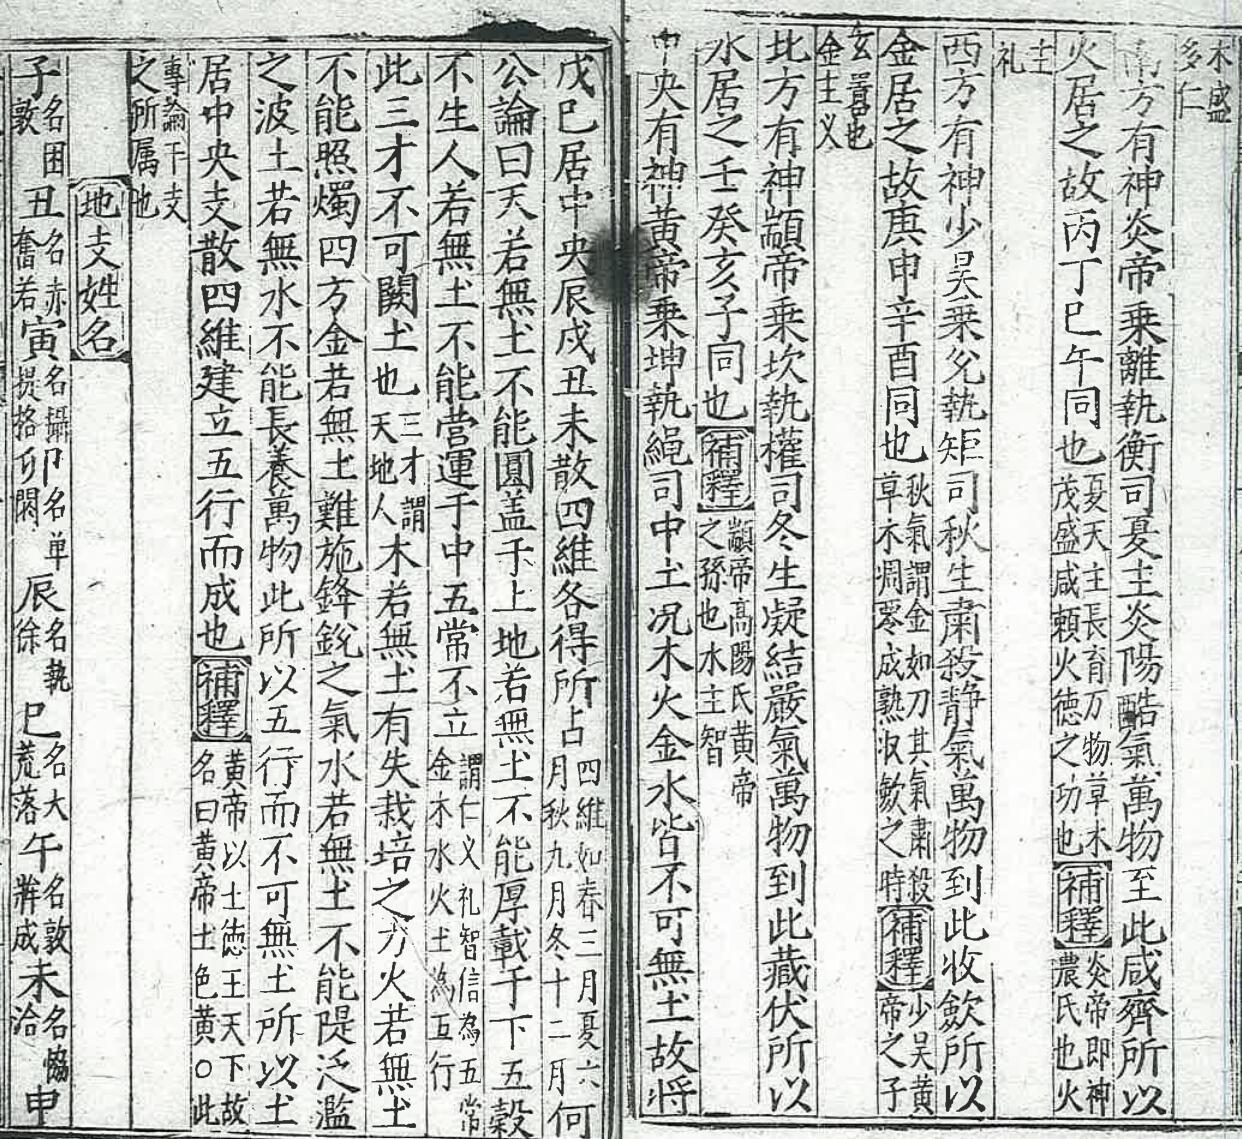 木盛
多仁
南方有神炎帝乗離執衡司夏主炎陽酷氣萬物至此咸齊所以
火居之故丙丁巳午同也夏天主長育万物草木茂盛咸頼火徳之功也補釋炎帝即神農氏也火
主
礼
西方有神少昊乗兊執矩司秋生肅殺静氣萬物到此收歛所以
金居之故庚申辛酉同也秋氣謂金如刀其氣肅殺草木凋零成熟収歛之時補釋少昊黄帝之子
玄囂也
金主义
北方有神顓帝乗坎執權司冬生凝結嚴氣萬物到此藏伏所以
水居之壬癸亥子同也補釋顓帝高陽氏黄帝之孫也水主智
中央有神黄帝乗坤執䋲司中土况木火金水皆不可無土故将
戊巳居中央辰戌丑未散四維各得所占四維如春三月夏六月秋九月冬十二月何
公論曰天若無土不能圓盖于上地若無土不能厚載于下五穀
不生人若無土不能营運于中五常不立謂仁义礼智信為五常金木水火土為五行
此三才不可闕土也三才謂天地人木若無土有失栽培之方火若無土
不能照燭四方金若無土難施鋒銳之氣水若無土不能隄泛濫
之波土若無水不能長養萬物此所以五行而不可無土所以土
居中央支散四維建立五行而成也補釋黄帝以土徳王天下故名曰黄帝土色黄○此
專論干支
之所属也
地支姓名
子名困敦丑名赤奮若寅名攝提格卯名单閼辰名執徐巳名大荒落午名敦牂成未名恊洽申